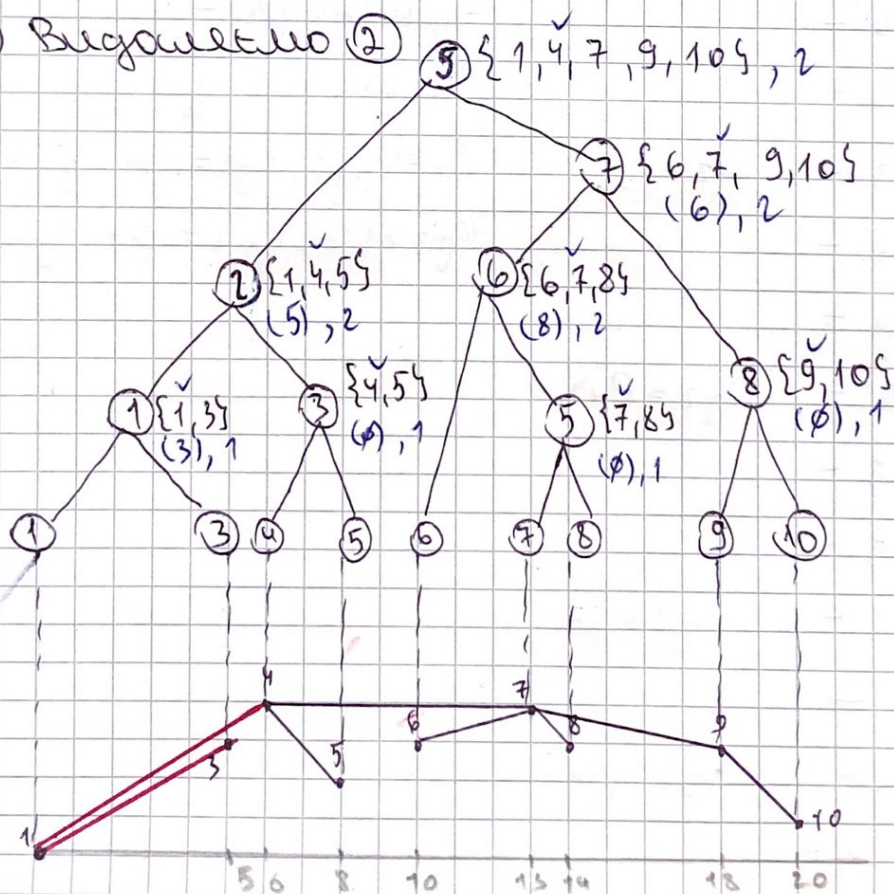 ) Видаляємо ②
5 {1, 4, 7, 9, 10}, 2
7 {6, 7, 9, 10}
(6), 2
2 {1, 4, 5}
(5), 2
6 {6, 7, 8}
(8), 2
1 {1, 3}
(3), 1
3 {4, 5}
(ø), 1
5 {7, 8}
(ø), 1
8 {9, 10}
(ø), 1
1 3 4 5 6 7 8 9 10
4 7
6 8 9
3 5
10
1
5 6 8 10 13 14 18 20